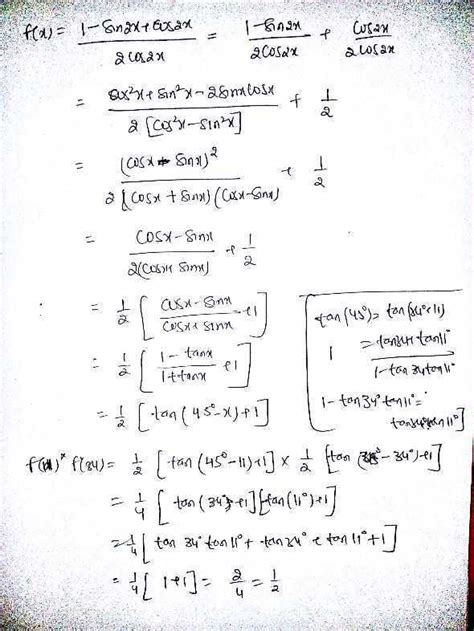 f(x) = (1 - sin2x + cos2x) / (2cos2x) = (1 - sin2x) / (2cos2x) + cos2x / (2cos2x)
= (cos²x + sin²x - 2sinxcosx) / (2[cos²x - sin²x]) + 1/2
= (cosx - sinx)² / (2(cosx + sinx)(cosx - sinx)) + 1/2
= (cosx - sinx) / (2(cosx + sinx)) + 1/2
= 1/2 [ (cosx - sinx) / (cosx + sinx) + 1 ]
= 1/2 [ (1 - tanx) / (1 + tanx) + 1 ]
= 1/2 [ tan(45° - x) + 1 ]
tan(45°) = tan(34° + 11)
1 = (tan34 + tan11°) / (1 - tan34 tan11°)
1 - tan34° tan11° =
tan34° + tan11°
f(11) × f(34) = 1/2 [ tan(45° - 11) + 1 ] × 1/2 [ tan(45° - 34°) + 1 ]
= 1/4 [ tan(34°) + 1 ] [ tan(11°) + 1 ]
= 1/4 [ tan 34° tan 11° + tan 34° + tan 11° + 1 ]
= 1/4 [ 1 + 1 ] = 2/4 = 1/2